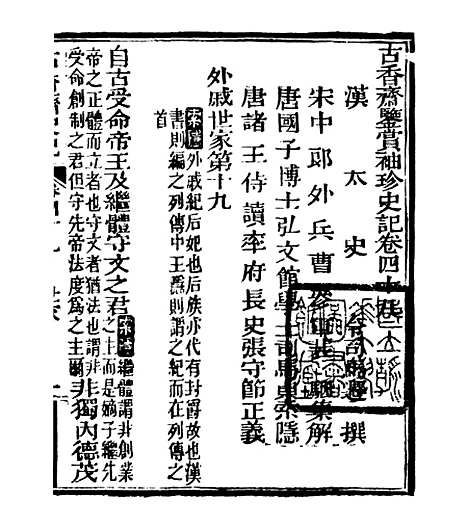 古香齋鑒賞袖珍史記卷四十九
漢太史令司馬遷撰
宋中郎外兵曹參軍裴駰集解
唐國子博士弘文館學士司馬貞索隱
唐諸王侍讀率府長史張守節正義
外戚世家第十九
索隱外戚紀后妃也后族亦代有封爵故也漢
書則編之列傳中王隱則謂之紀而在列傳之
首
自古受命帝王及繼體守文之君索隱繼體謂非創業
之主而是嫡子繼先
帝之正體而立者也守文者猶法也謂非
受命創制之君但守先帝法度為之主爾非獨內德茂